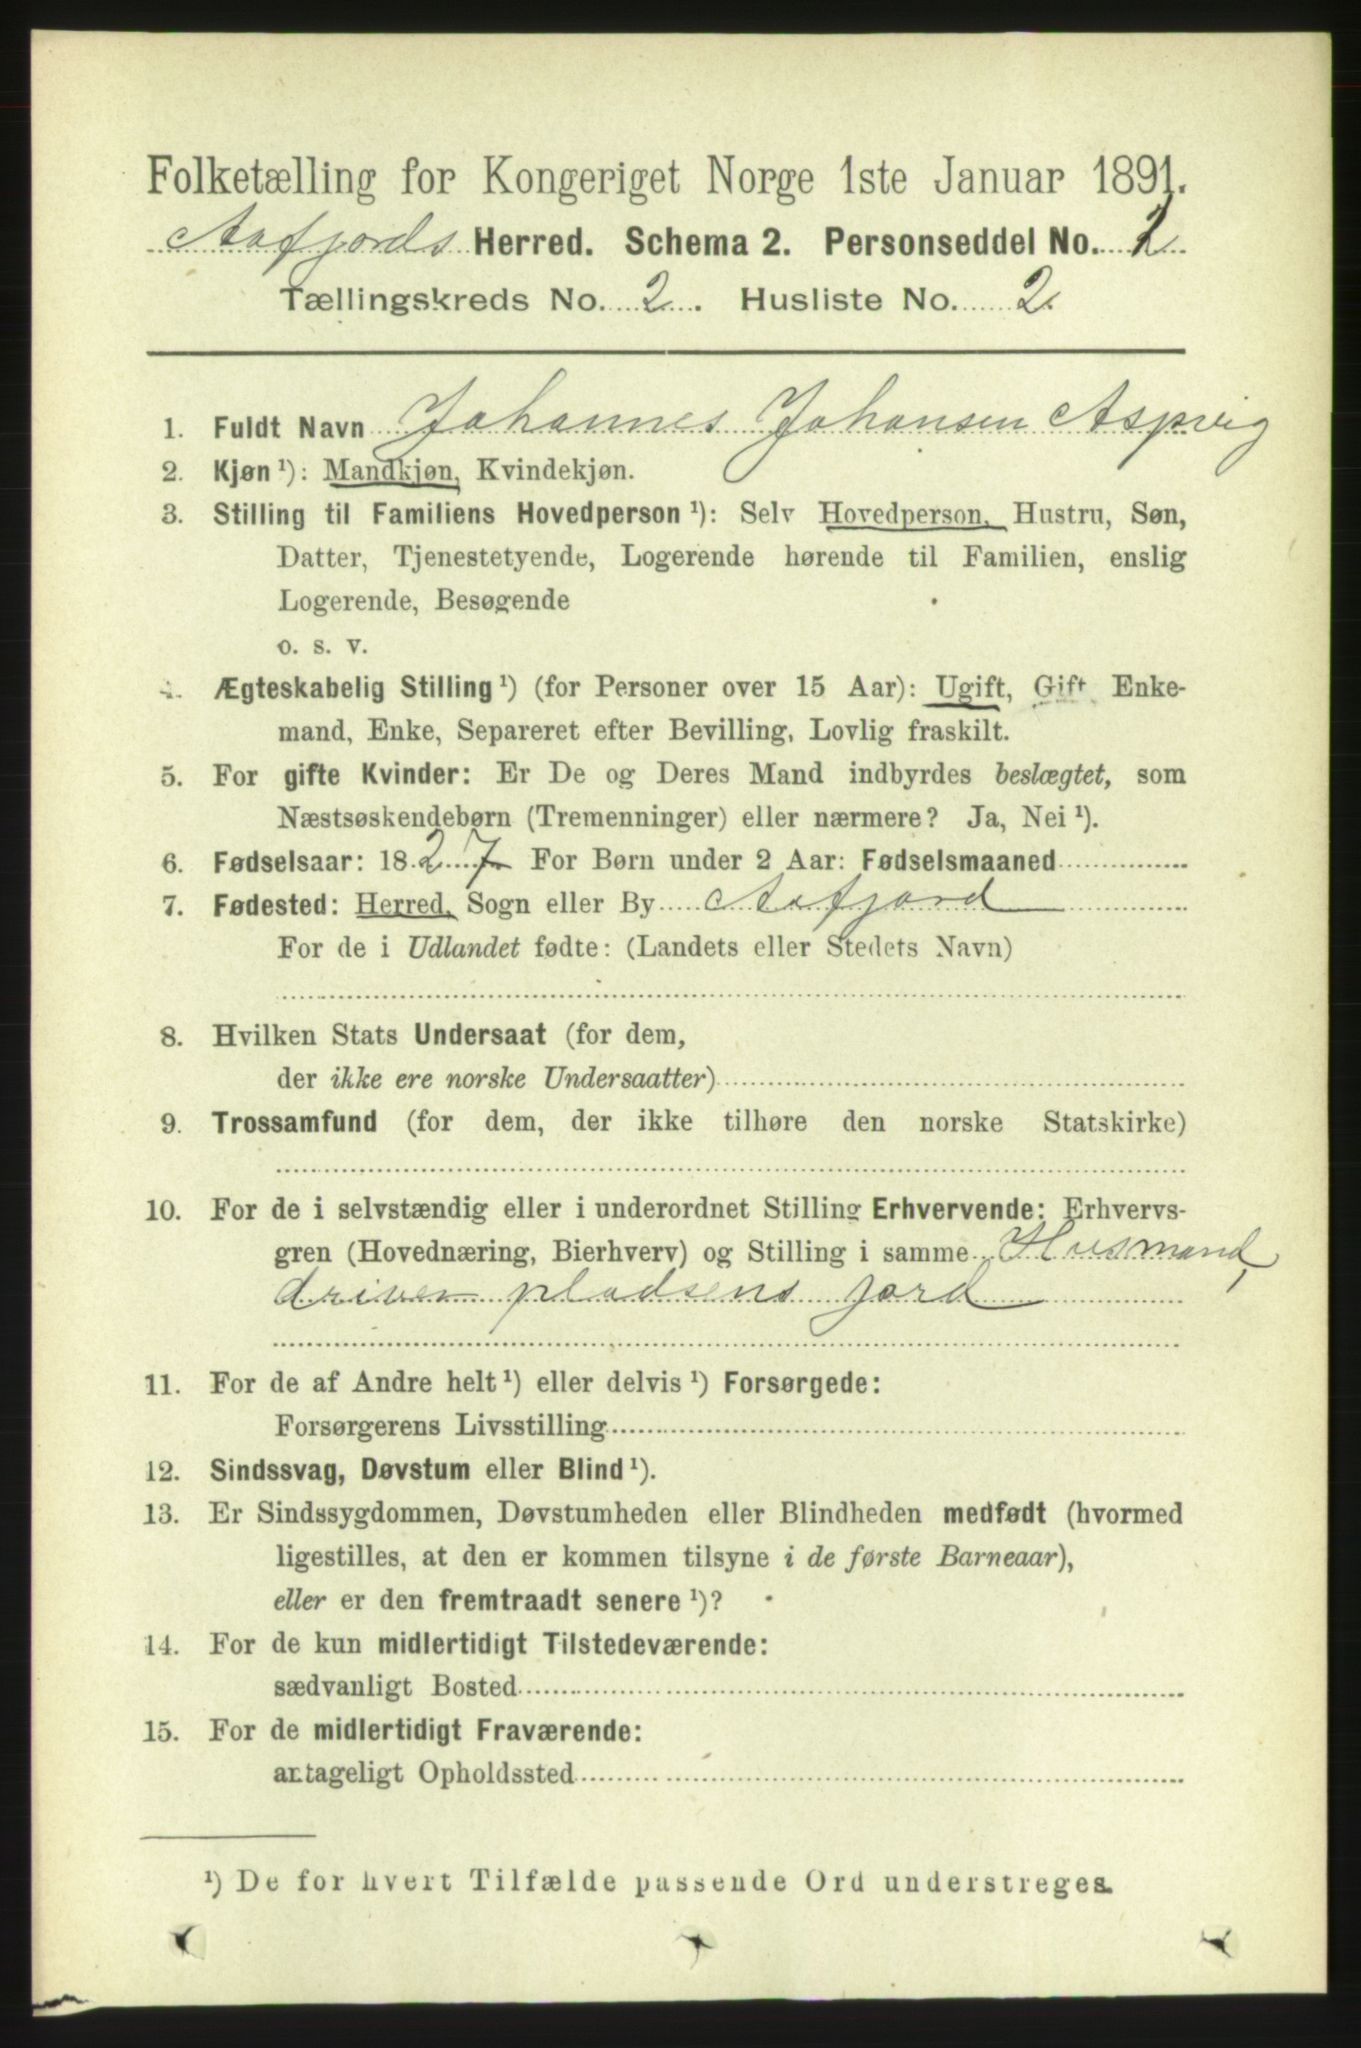 Folketælling for Kongeriget Norge 1ste Januar 1891.
Aafjords Herred. Schema 2. Personseddel No. 1
Tællingskreds No. 2. Husliste No. 2.
1. Fuldt Navn Johannes Johansen Aspvig
2. Kjøn ¹): Mandkjøn, Kvindekjøn.
3. Stilling til Familiens Hovedperson ¹): Selv Hovedperson, Hustru, Søn,
Datter, Tjenestetyende, Logerende hørende til Familien, enslig
Logerende, Besøgende
o. s. v.
4. Ægteskabelig Stilling ¹) (for Personer over 15 Aar): Ugift, Gift, Enke-
mand, Enke, Separeret efter Bevilling, Lovlig fraskilt.
5. For gifte Kvinder: Er De og Deres Mand indbyrdes beslægtet, som
Næstsøskendebørn (Tremenninger) eller nærmere? Ja, Nei ¹).
6. Fødselsaar: 1827 For Børn under 2 Aar: Fødselsmaaned
7. Fødested: Herred, Sogn eller By Aafjord
For de i Udlandet fødte: (Landets eller Stedets Navn)
8. Hvilken Stats Undersaat (for dem,
der ikke ere norske Undersaatter)
9. Trossamfund (for dem, der ikke tilhøre den norske Statskirke)
10. For de i selvstændig eller i underordnet Stilling Erhvervende: Erhvervs-
gren (Hovednæring, Bierhverv) og Stilling i samme Husmand,
driver pladsens jord
11. For de af Andre helt ¹) eller delvis ¹) Forsørgede:
Forsørgerens Livsstilling
12. Sindssvag, Døvstum eller Blind ¹).
13. Er Sindssygdommen, Døvstumheden eller Blindheden medfødt (hvormed
ligestilles, at den er kommen tilsyne i de første Barneaar),
eller er den fremtraadt senere ¹)?
14. For de kun midlertidigt Tilstedeværende:
sædvanligt Bosted
15. For de midlertidigt Fraværende:
antageligt Opholdssted
¹) De for hvert Tilfælde passende Ord understreges.